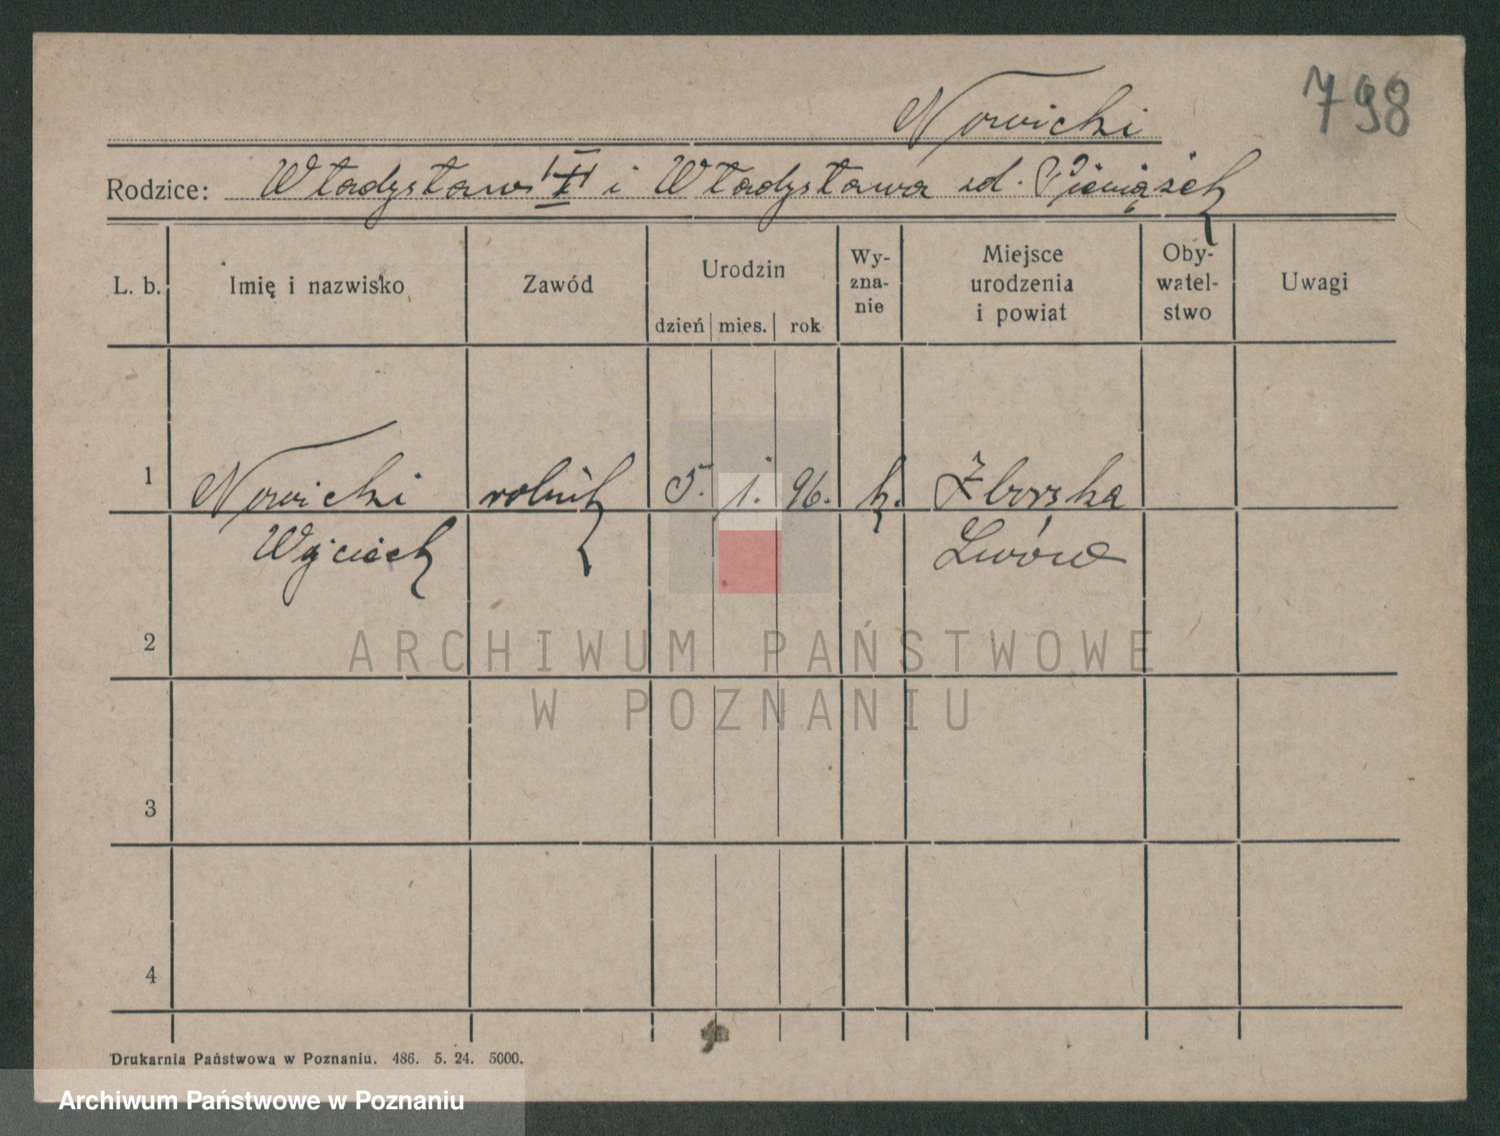 Nowicki
798
Rodzice: Władysław i Władysława zd. Pieniążek
L. b. Imię i nazwisko Zawód Urodzin dzień mies. rok Wy-zna-nie Miejsce urodzenia i powiat Oby-watel-stwo Uwagi
1 Nowicki rolnik 5. 1. 96. k. Zborska
Wojciech Lwów
2
ARCHIWUM PAŃSTWOWE
W POZNANIU
3
4
Drukarnia Państwowa w Poznaniu. 486. 5. 24. 5000.
Archiwum Państwowe w Poznaniu